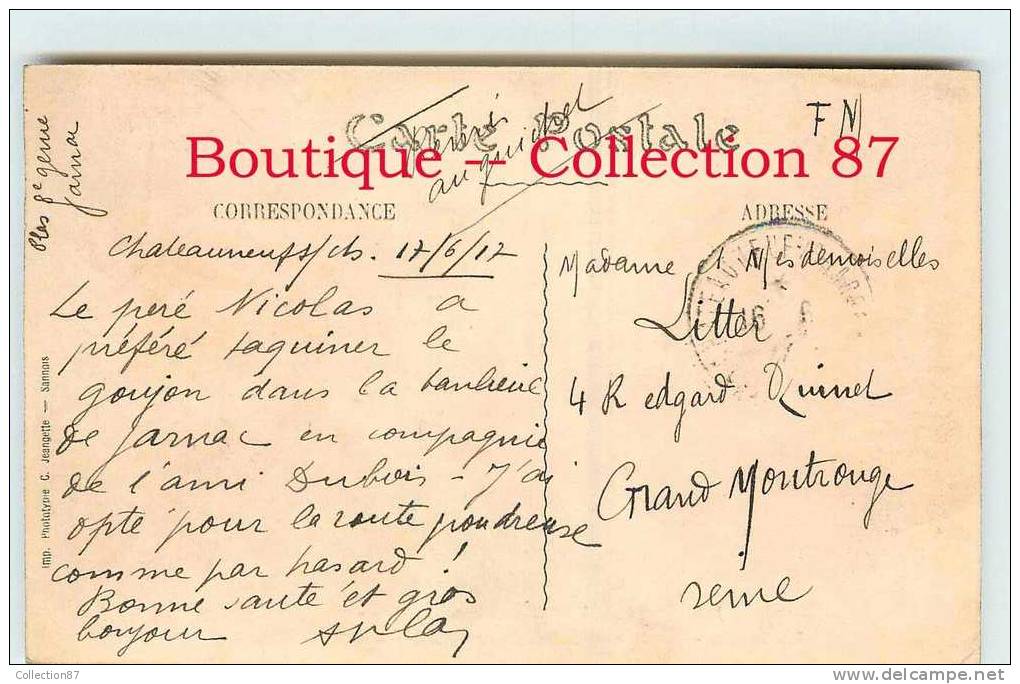 Carte Postale
F N
Boutique -- Collection 87
CORRESPONDANCE
ADRESSE
8e genie
Jarnac
Chateauneuf s/ch. 17/6/17
Le peré Nicolas a
préféré taquiner le
goujon dans la banlieue
de Jarnac en compagnie
de l'ami Dubois - J'ai
opté pour la route poudreuse
comme par hasard !
Bonne santé et gros
bonjour
Madame et Mesdemoiselles
Litter
4 R edgard Quinet
Grand Montrouge
Seine
Imp. Phototypie C. Jeangette — Sannois
Collection87
www.delcampe.net